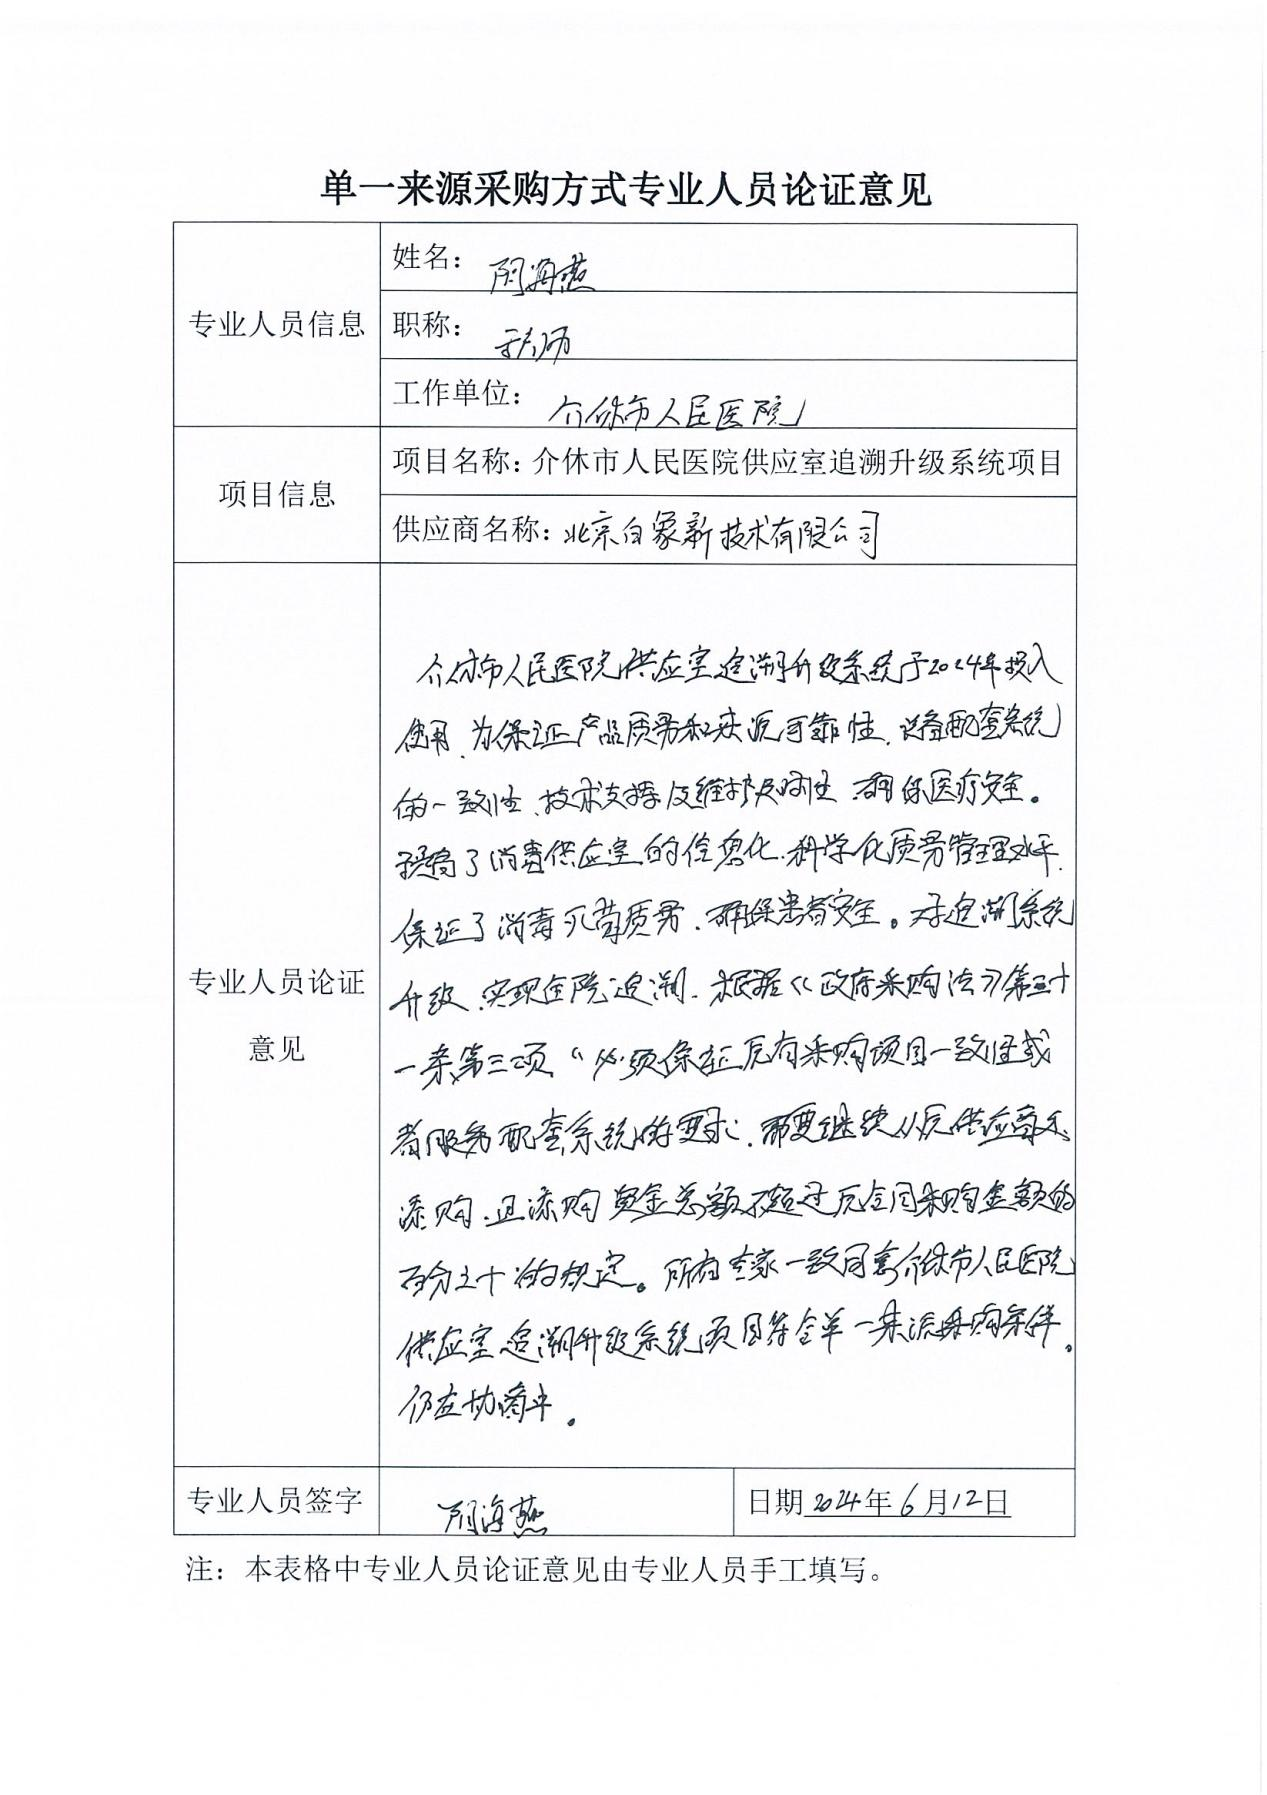 单一来源采购方式专业人员论证意见
专业人员信息
姓名：海燕
职称：
工作单位：介休市人民医院
项目信息
项目名称：介休市人民医院供应室追溯升级系统项目
供应商名称：北京白象新技术有限公司
专业人员论证
意见
介休市人民医院供应室追溯升级系统于2024年投入
使用、为保证产品质量和来源可靠性、设备配套系统
的一致性、技术支撑及维护及时性、确保医疗安全。
提高了消毒供应室的信息化、科学化质量管理水平、
保证了消毒灭菌质量、确保患者安全。追溯系统
升级、实现全院追溯、根据《政府采购法》第三十
一条第三项“必须保证原有采购项目一致性或
者服务配套系统的要求、需要继续从原供应商
添购、且添购资金总额不超过原合同采购金额的
百分之十”的规定。所有专家一致同意介休市人民医院
供应室追溯升级系统项目符合单一来源采购条件。
专业人员签字
海燕
日期2024年6月12日
注：本表格中专业人员论证意见由专业人员手工填写。